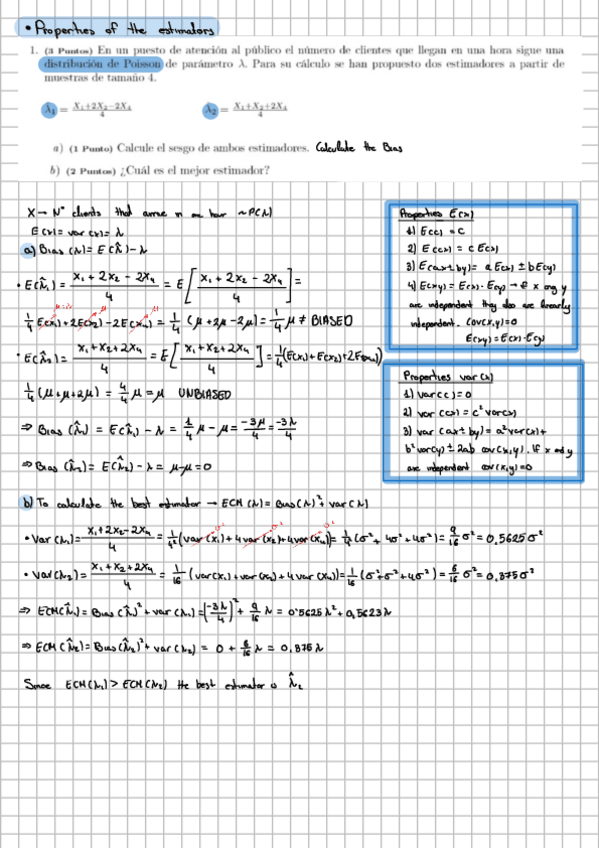 • Properties of the estimators
1. (3 Puntos) En un puesto de atención al público el número de clientes que llegan en una hora sigue una
distribución de Poisson de parámetro λ. Para su cálculo se han propuesto dos estimadores a partir de
muestras de tamaño 4.
λ̂₁ = (X₁+2X₂−2X₄)/4    λ̂₂ = (X₁+X₂+2X₄)/4
a) (1 Punto) Calcule el sesgo de ambos estimadores. Calculate the Bias
b) (2 Puntos) ¿Cuál es el mejor estimador?
X → Nº clients that arrive in one hour ~P(λ)
E(x) = var(x) = λ
a) Bias (λ) = E(λ̂) − λ
• E(λ̂₁) = (x₁ + 2x₂ − 2x₄)/4 = E[(x₁ + 2x₂ − 2x₄)/4] =
1/4 E(x₁) + 2E(x₂) − 2E(x₄) = 1/4 (μ + 2μ − 2μ) = 1/4 μ ≠ BIASED
• E(λ̂₂) = (x₁ + x₂ + 2x₄)/4 = E[(x₁ + x₂ + 2x₄)/4] = 1/4 (E(x₁) + E(x₂) + 2E(x₄))
1/4 (μ + μ + 2μ) = 4/4 μ = μ UNBIASED
⇒ Bias (λ̂₁) = E(λ̂₁) − λ = 1/4 μ − μ = −3μ/4 = −3λ/4
⇒ Bias (λ̂₂) = E(λ̂₂) − λ = μ − μ = 0
Properties E(x)
1) E(c) = c
2) E(cx) = c E(x)
3) E(ax ± by) = a E(x) ± b E(y)
4) E(xy) = E(x) · E(y) → if x any y
are independent they also are linearly
independent. Cov(x,y) = 0
E(xy) = E(x) · E(y)
Properties var(x)
1) var(c) = 0
2) var(cx) = c² var(x)
3) var(ax ± by) = a² var(x) +
b² var(y) ± 2ab cov(x,y). If x and y
are independent cov(x,y) = 0
b) To calculate the best estimator → ECM(λ) = Bias(λ)² + var(λ)
• Var(λ₁) = (x₁ + 2x₂ − 2x₄)/4 = 1/4² (var(x₁) + 4var(x₂) + 4var(x₄)) = 1/4 (σ² + 4σ² + 4σ²) = 9/16 σ² = 0,5625σ²
• Var(λ₂) = (x₁ + x₂ + 2x₄)/4 = 1/16 (var(x₁) + var(x₂) + 4 var(x₄)) = 1/16 (σ² + σ² + 4σ²) = 6/16 σ² = 0,375σ²
⇒ ECM(λ̂₁) = Bias(λ̂)² + var(λ₁) = (−3λ/4)² + 9/16 λ = 0'5625λ² + 0,5623λ
⇒ ECM(λ̂₂) = Bias(λ̂₂)² + var(λ₂) = 0 + 6/16 λ = 0,375λ
Since ECM(λ₁) > ECM(λ₂) the best estimator is λ̂₂